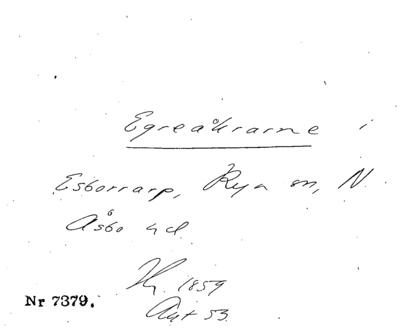 Egreåkrarne i
Esborrarp, Rya sn, N.
Åsbo hd
Hg. 1859
Akt 53.
Nr 7379.